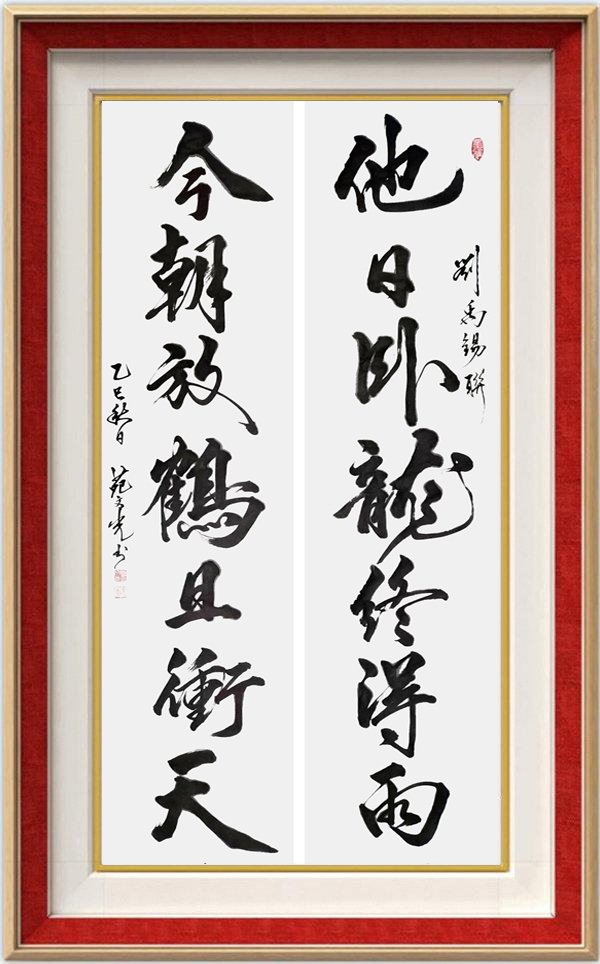 他日卧龍終得雨
劉禹錫聯
今朝放鶴且衝天
乙巳秋日 范文光书